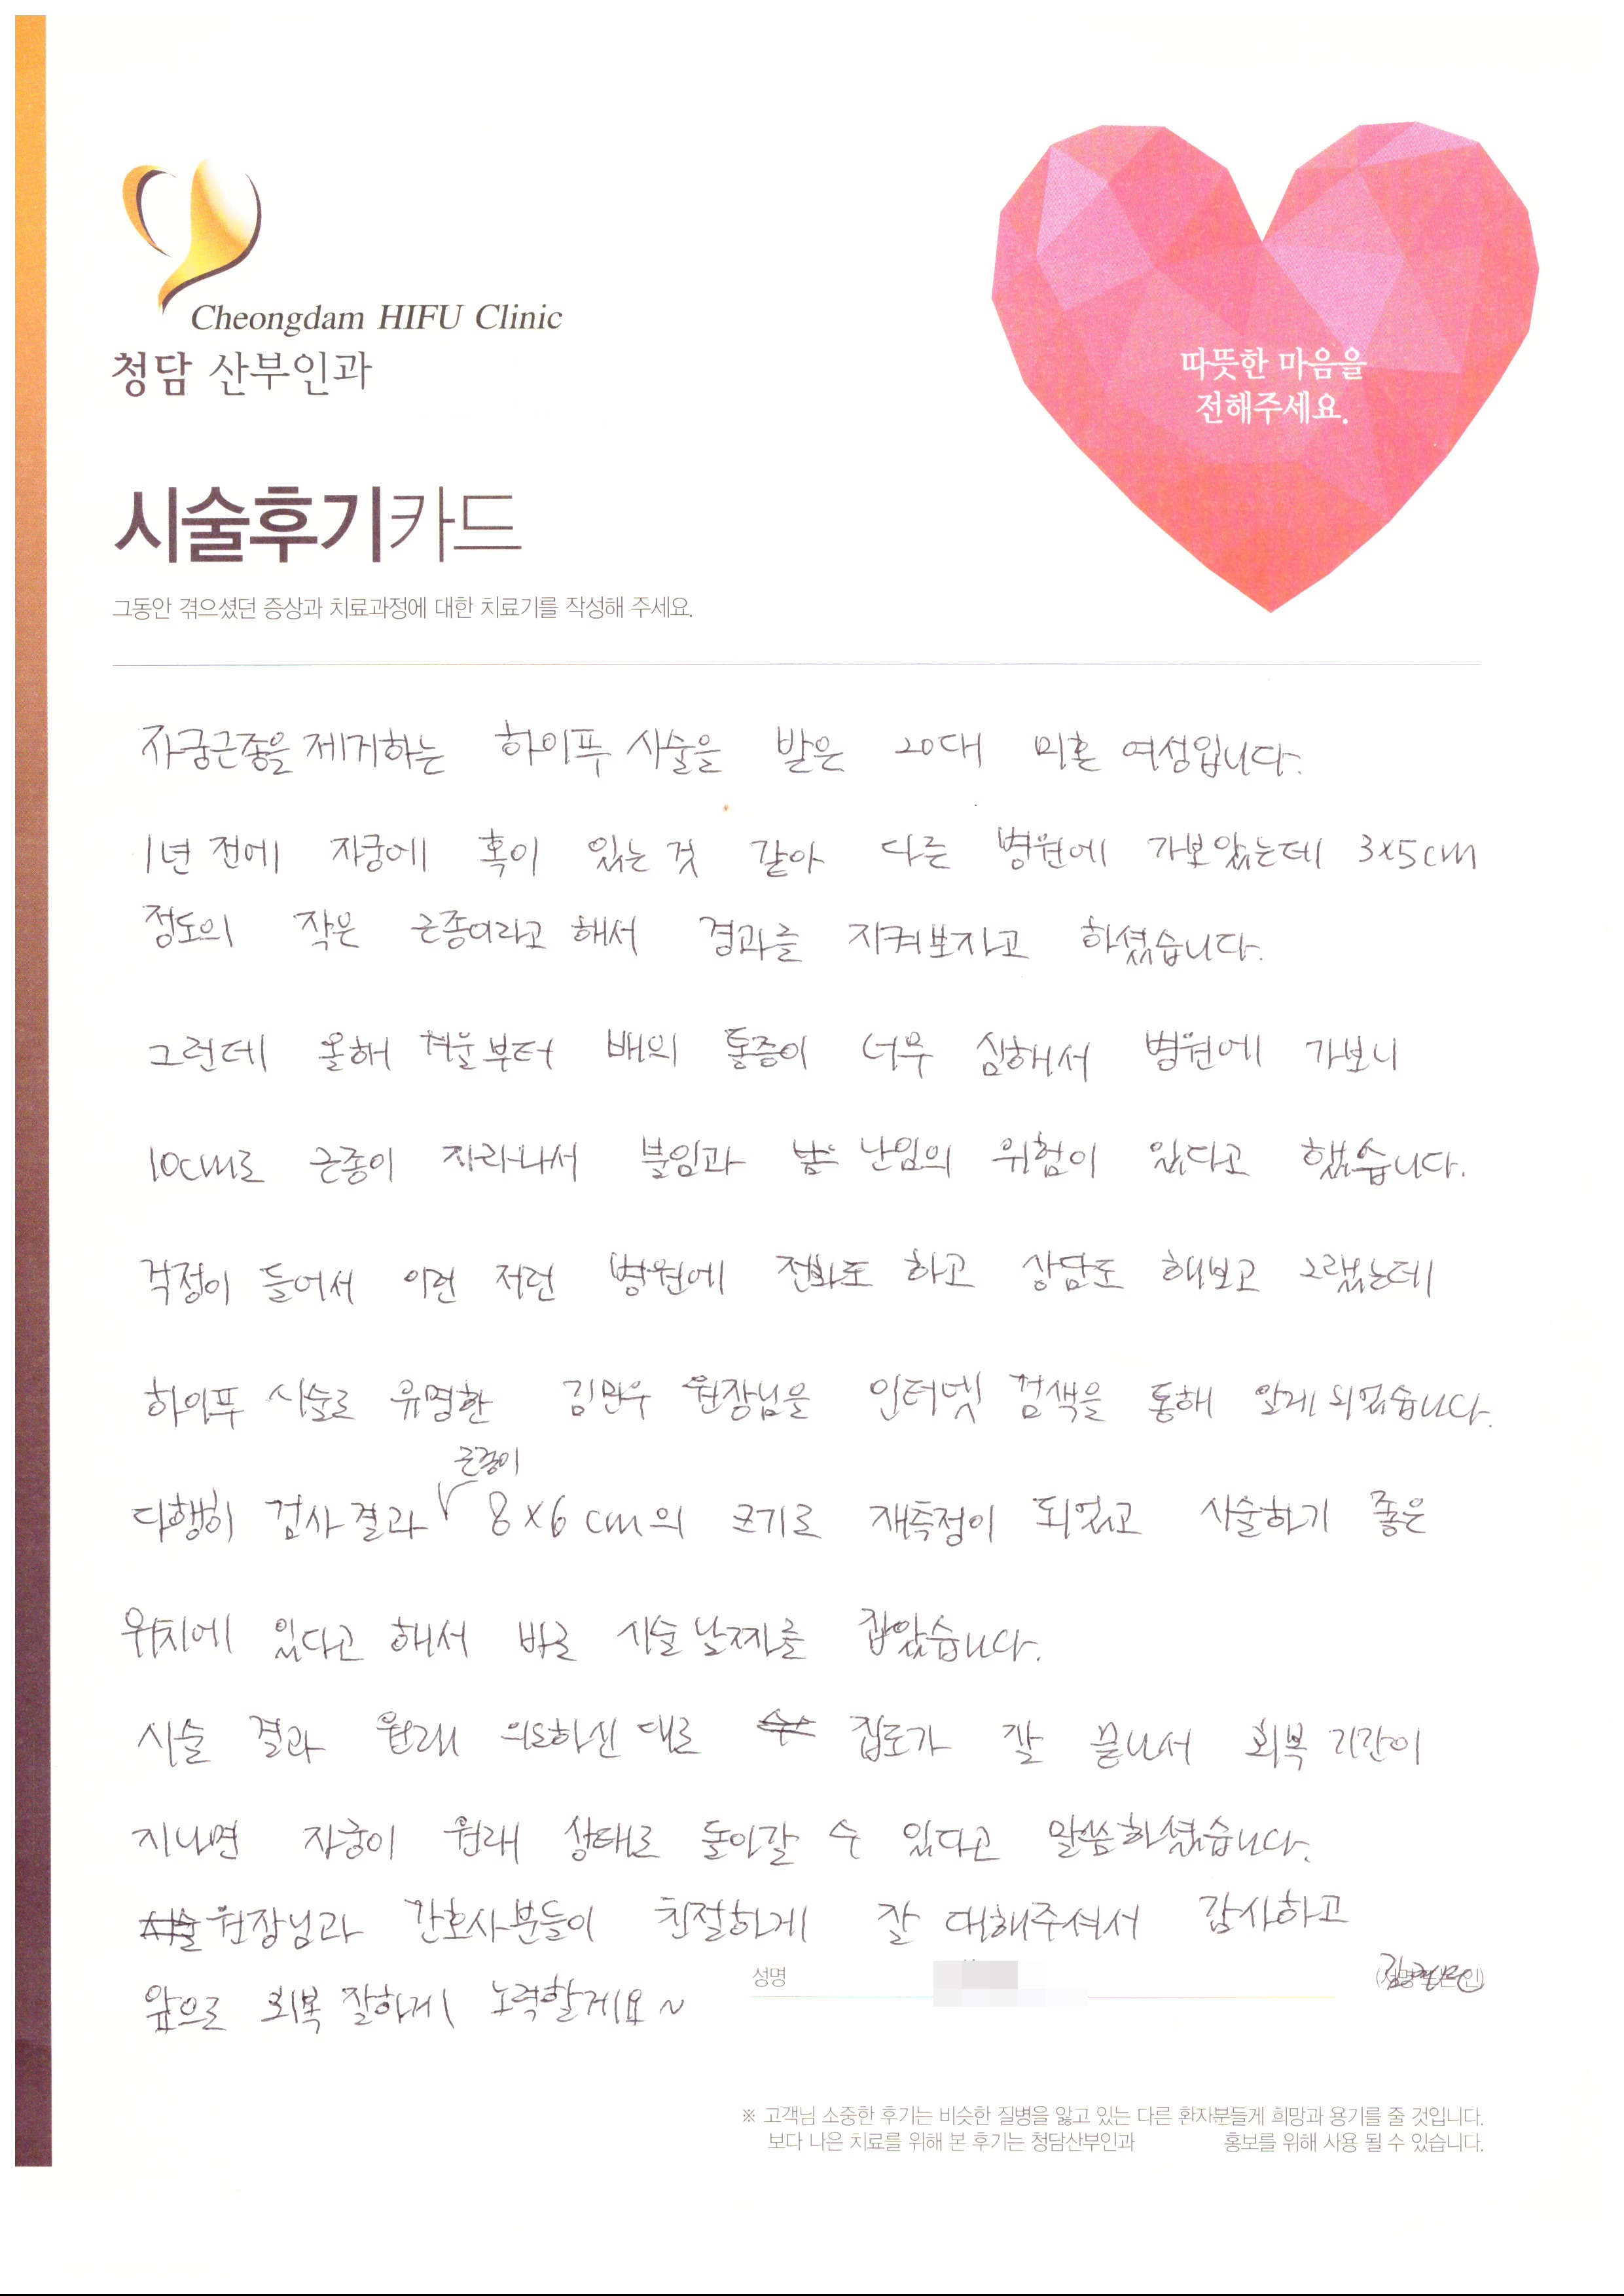 Cheongdam HIFU Clinic
청담 산부인과
따뜻한 마음을
전해주세요.
시술후기카드
그동안 겪으셨던 증상과 치료과정에 대한 치료기를 작성해 주세요.
자궁근종을 제거하는 하이푸 시술을 받은 20대 미혼 여성입니다.
1년 전에 자궁에 혹이 있는 것 같아 다른 병원에 가보았는데 3x5cm
정도의 작은 근종이라고 해서 경과를 지켜보자고 하셨습니다.
그런데 올해 겨울부터 배의 통증이 너무 심해서 병원에 가보니
10cm로 근종이 자라나서 불임과 난임의 위험이 있다고 했습니다.
걱정이 들어서 이런 저런 병원에 전화도 하고 상담도 해보고 그랬는데
하이푸 시술로 유명한 김민우 원장님을 인터넷 검색을 통해 알게 되었습니다.
다행히 검사 결과 근종이 8x6cm의 크기로 재측정이 되었고 시술하기 좋은
위치에 있다고 해서 바로 시술 날짜를 잡았습니다.
시술 결과 원래 의도하신 대로 집도가 잘 끝나서 회복 기간이
지나면 자궁이 원래 상태로 돌아갈 수 있다고 말씀하셨습니다.
원장님과 간호사분들이 친절하게 잘 대해주셔서 감사하고
앞으로 회복 잘하게 노력할게요~
성명
※ 고객님 소중한 후기는 비슷한 질병을 앓고 있는 다른 환자분들게 희망과 용기를 줄 것입니다.
보다 나은 치료를 위해 본 후기는 청담산부인과 홍보를 위해 사용 될 수 있습니다.